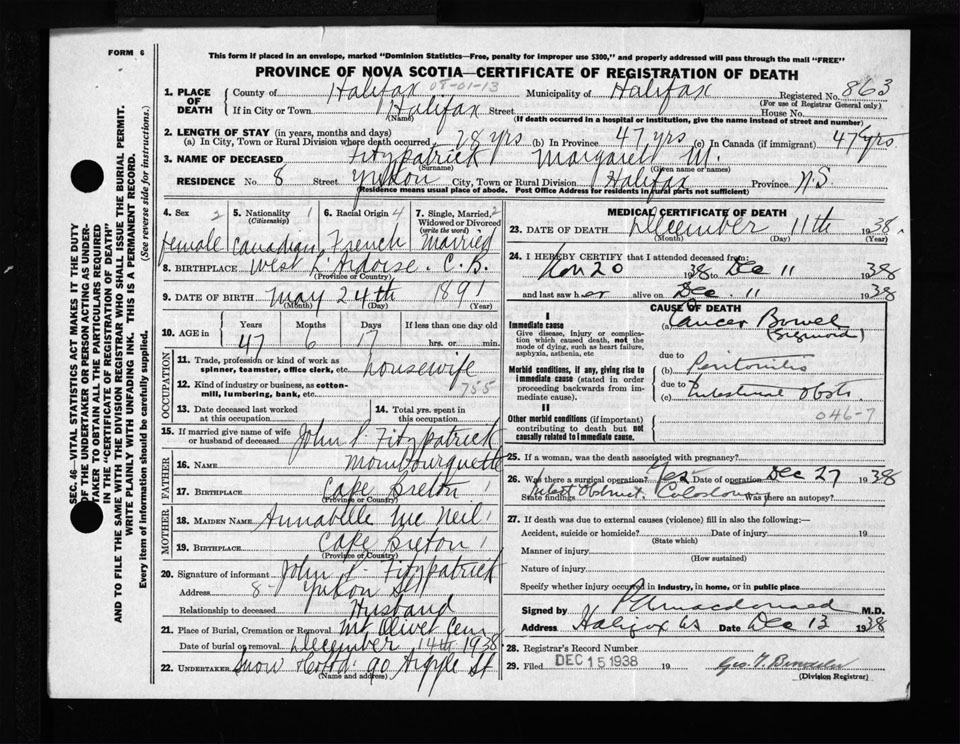 FORM 6
This form if placed in an envelope, marked "Dominion Statistics—Free, penalty for improper use $300," and properly addressed will pass through the mail "FREE"
PROVINCE OF NOVA SCOTIA—CERTIFICATE OF REGISTRATION OF DEATH
SEC. 46—VITAL STATISTICS ACT MAKES IT THE DUTY
OF THE UNDERTAKER OR PERSON ACTING AS UNDER-
TAKER TO OBTAIN ALL THE PARTICULARS REQUIRED
IN THE "CERTIFICATE OF REGISTRATION OF DEATH"
AND TO FILE THE SAME WITH THE DIVISION REGISTRAR WHO SHALL ISSUE THE BURIAL PERMIT.
WRITE PLAINLY WITH UNFADING INK. THIS IS A PERMANENT RECORD.
Every item of Information should be carefully supplied. (See reverse side for instructions.)
1. PLACE OF DEATH
County of Halifax 08-01-13 Municipality of Halifax Registered No. 863
(For use of Registrar General only)
If in City or Town Halifax Street House No.
(Name) (If death occurred in a hospital or institution, give the name instead of street and number)
2. LENGTH OF STAY (in years, months and days)
(a) In City, Town or Rural Division where death occurred 28 yrs (b) In Province 47 yrs (c) In Canada (if immigrant) 47 yrs.
3. NAME OF DECEASED Fitzpatrick Margaret M.
(Surname) (Given name or names)
RESIDENCE No. 8 Street Yukon City, Town or Rural Division Halifax Province N.S.
(Residence means usual place of abode. Post Office Address for residents in rural parts not sufficient)
4. Sex 2 female
5. Nationality 1 (Citizenship) Canadian
6. Racial Origin 4 French
7. Single, Married, 2 Widowed or Divorced (write the word) Married
8. BIRTHPLACE West L'Ardoise. C.B.
(Province or Country)
9. DATE OF BIRTH May 24th 1891
(Month) (Day) (Year)
10. AGE in Years 47 Months 6 Days 17 If less than one day old hrs. or min.
OCCUPATION
11. Trade, profession or kind of work as spinner, teamster, office clerk, etc. housewife
12. Kind of industry or business, as cotton-mill, lumbering, bank, etc. 755
13. Date deceased last worked at this occupation
14. Total yrs. spent in this occupation
15. If married give name of wife or husband of deceased John P. Fitzpatrick
FATHER
16. NAME Mombourquette
17. BIRTHPLACE Cape Breton 1
(Province or Country)
MOTHER
18. MAIDEN NAME Annabelle McNeil 1
19. BIRTHPLACE Cape Breton 1
(Province or Country)
20. Signature of informant John P. Fitzpatrick
Address 8 - Yukon St
Relationship to deceased Husband
21. Place of Burial, Cremation or Removal Mt Olivet Cem
Date of burial or removal December 14th 1938
22. UNDERTAKER Snow & Co Ltd. 90 Argyle St
(Name and address)
MEDICAL CERTIFICATE OF DEATH
23. DATE OF DEATH December 11th 1938
(Month) (Day) (Year)
24. I HEREBY CERTIFY that I attended deceased from:
Nov 20 1938 to Dec 11 1938
and last saw her alive on Dec. 11 1938
CAUSE OF DEATH
I
Immediate cause
Give disease, injury or complication which caused death, not the mode of dying, such as heart failure, asphyxia, asthenia, etc
(a) Cancer Bowel (Sigmoid)
Morbid conditions, if any, giving rise to immediate cause (stated in order of proceeding backwards from immediate cause).
due to
(b) Peritonitis
due to
(c) Intestinal Obst.
046-7
II
Other morbid conditions (if important) contributing to death but not causally related to immediate cause.
25. If a woman, was the death associated with pregnancy?
26. Was there a surgical operation? Yes Date of operation Dec 27 1938
State findings Intest Obstruct. Colostomy Was there an autopsy?
27. If death was due to external causes (violence) fill in also the following:—
Accident, suicide or homicide? Date of injury 19
(State which)
Manner of injury
(How sustained)
Nature of injury
Specify whether injury occurred in industry, in home, or in public place
Signed by Macdonald M.D.
Address Halifax NS Date Dec 13 1938
28. Registrar's Record Number
29. Filed DEC 15 1938 19 Geo. T.
(Division Registrar)